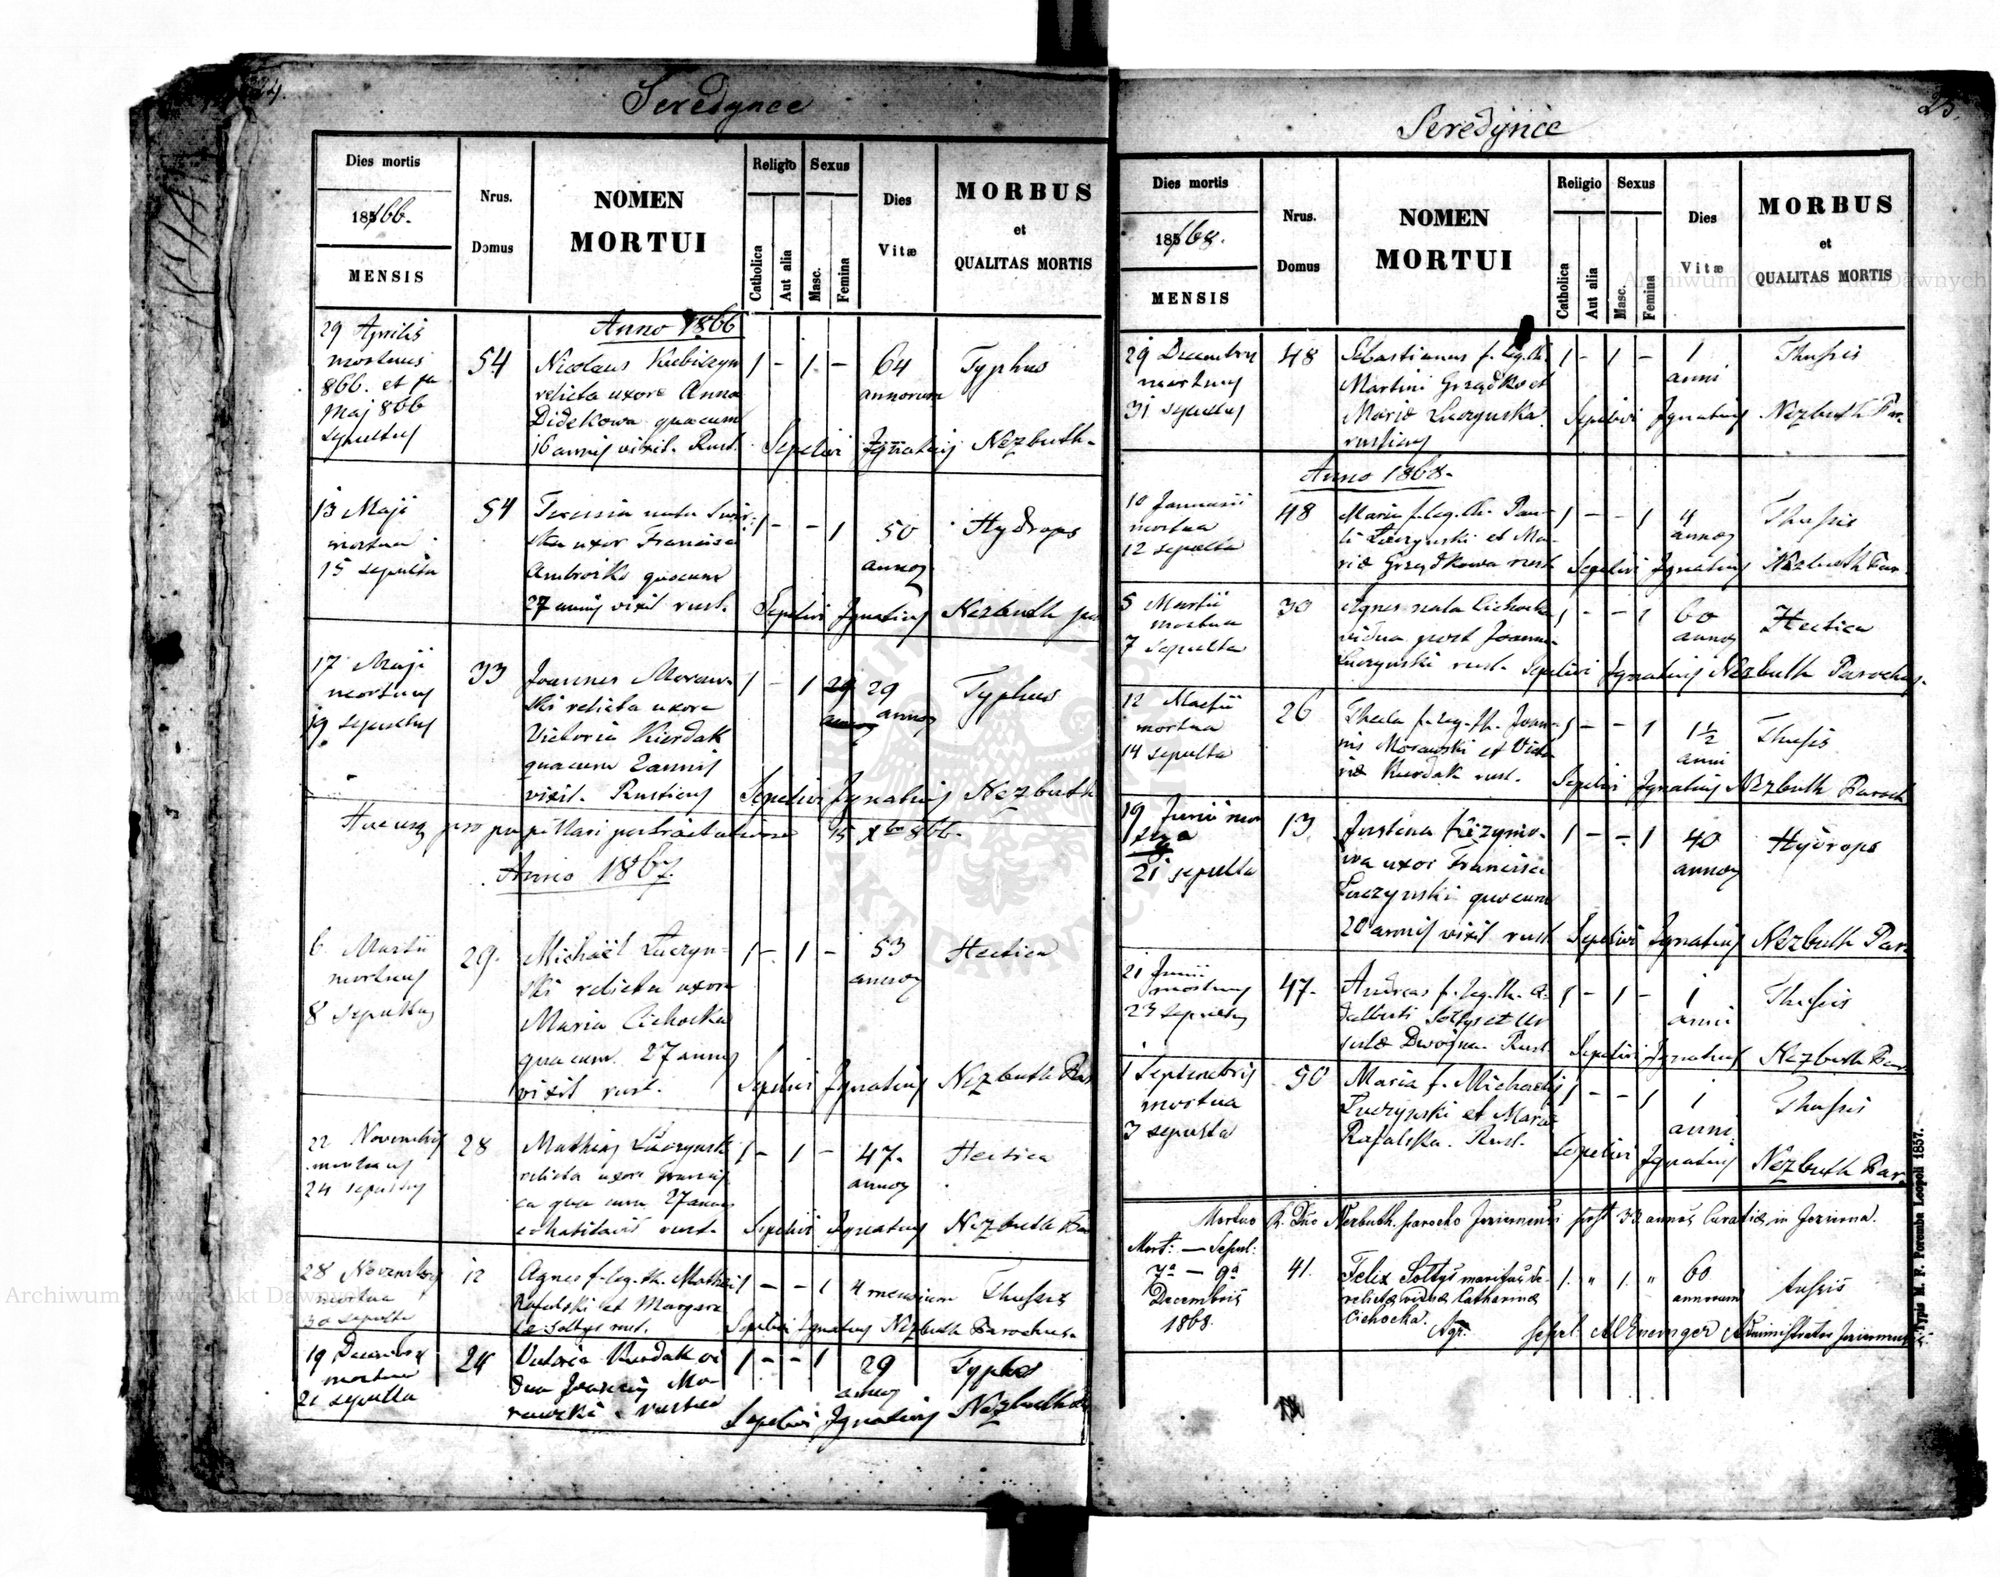 24.
Seredynce
Dies mortis
185/66.
MENSIS
Nrus.
Domus
NOMEN
MORTUI
Religio
Catholica
Aut alia
Sexus
Masc.
Femina
Dies
Vitæ
MORBUS
et
QUALITAS MORTIS
Anno 1866
29 Aprilis
mortuus
866. et
Maj 866
sepultus
54
Nicolaus
relicta uxore Anna
Didekowa quacum
16 annis vixit. Rust.
1 - 1 -
64
annorum
Typhus
Sepelivi Ignatius Nezbuth
13 Maji
mortua
15 sepulta
54
Teressia nata
uxor Francisci
Ambroszko quocum
27 annis vixit rust.
1 - - 1
50
annor
Hydrops
Sepelivi Ignatius Nezbuth
17 Maji
mortuus
19 sepultus
33
Joannes Moraw-
ski relicta uxore
Victoria Kurdak
quacum 2 annis
vixit. Rusticus
1 - 1
29
annor
Typhus
Sepelivi Ignatius Nezbuth
Hucusq pro 15 Xbr 866.
Anno 1867.
6 Martii
mortuus
8 sepultus
29.
Michaël Luczyn-
ski relicta uxore
Maria Cichocka
quacum 27 annis
vixit rust.
1 - 1 -
53
annor
Hectica
Sepelivi Ignatius Nezbuth Par
22 Novembris
mortuus
24 sepultus
28
Mathias Luczynski
relicta uxore Francis
ca qua cum 27 annis
cohabitavit rust.
1 - 1 -
47.
annor
Hectica
Sepelivi Ignatius Nezbuth Par
28 Novembris
mortua
30 sepulta
12
Agnes f. leg. th. Mathaei
Rafalski et Margare
tæ Soltys rust.
1 - - 1
4 mensium
Thussis
Sepelivi Ignatius Nezbuth Parochus.
19 Decembris
mortua
21 sepulta
24
Victoria Kurdak vi
dua Joannis Mo-
rawski rustica
1 - - 1
29
annor
Typhus
Sepelivi Ignatius Nezbuth
25.
Seredynce
Dies mortis
185/68.
MENSIS
Nrus.
Domus
NOMEN
MORTUI
Religio
Catholica
Aut alia
Sexus
Masc.
Femina
Dies
Vitæ
MORBUS
et
QUALITAS MORTIS
29 Decembris
mortuus
31 sepultus
48
Sebastianus f. leg. th.
Martini Grządko et
Mariæ Luczynska
rusticus
1 - 1 -
1
anni
Thussis
Sepelivi Ignatius Nezbuth Par.
Anno 1868.
10 Januarii
mortua
12 sepulta
48
Maria f. leg. th. Pau-
li Luczynski et Ma-
riæ Grządkowa rust
1 - - 1
4
annor
Thussis
Sepelivi Ignatius Nezbuth Par.
5 Martii
mortua
7 sepulta
30
Agnes nata Cichocka
vidua post Joanne
Luczynski rust.
1 - - 1
60
annor
Hectica
Sepelivi Ignatius Nezbuth Parochus.
12 Martii
mortua
14 sepulta
26
Thecla f. leg. th. Joan-
nis Morawski et Victo
riæ Kurdak rust.
1 - - 1
1½
anni
Thussis
Sepelivi Ignatius Nezbuth Paroch
19 Junii mor
tua
21 sepulta
13
Justina
uxor Francisci
Luczynski quocum
20 annis vixit rust
1 - - 1
40
annor
Hydrops
Sepelivi Ignatius Nezbuth Par.
21 Junii
mortuus
23 sepultus
47.
Andreas f. leg. th. A-
dalberti Soltys et Ur
sulæ Dwojna. Rust
1 - 1 -
1
anni
Thussis
Sepelivi Ignatius Nezbuth Par
1 Septembris
mortua
3 sepulta
50
Maria f. Michaelis
Luczynski et Mariæ
Rafalska. Rust.
1 - - 1
1
anni
Thussis
Sepelivi Ignatius Nezbuth Par.
Mortuo R. Dno Nezbuth parocho Jeziernensi post 33 annos Curatiæ in Jezierna.
Mort: — Sepul:
7ª — 9ª
Decembris
1868
41.
Felix Soltys maritus de-
relictæ viduæ Catharinæ
Cichocka. Agr.
1. " 1. "
60
annorum
tussis
Sepel. Administrator Jeziernensis
Typis M. F. Poremba Leopoli 1857.
Archiwum Główne Akt Dawnych
Archiwum Główne Akt Dawnych